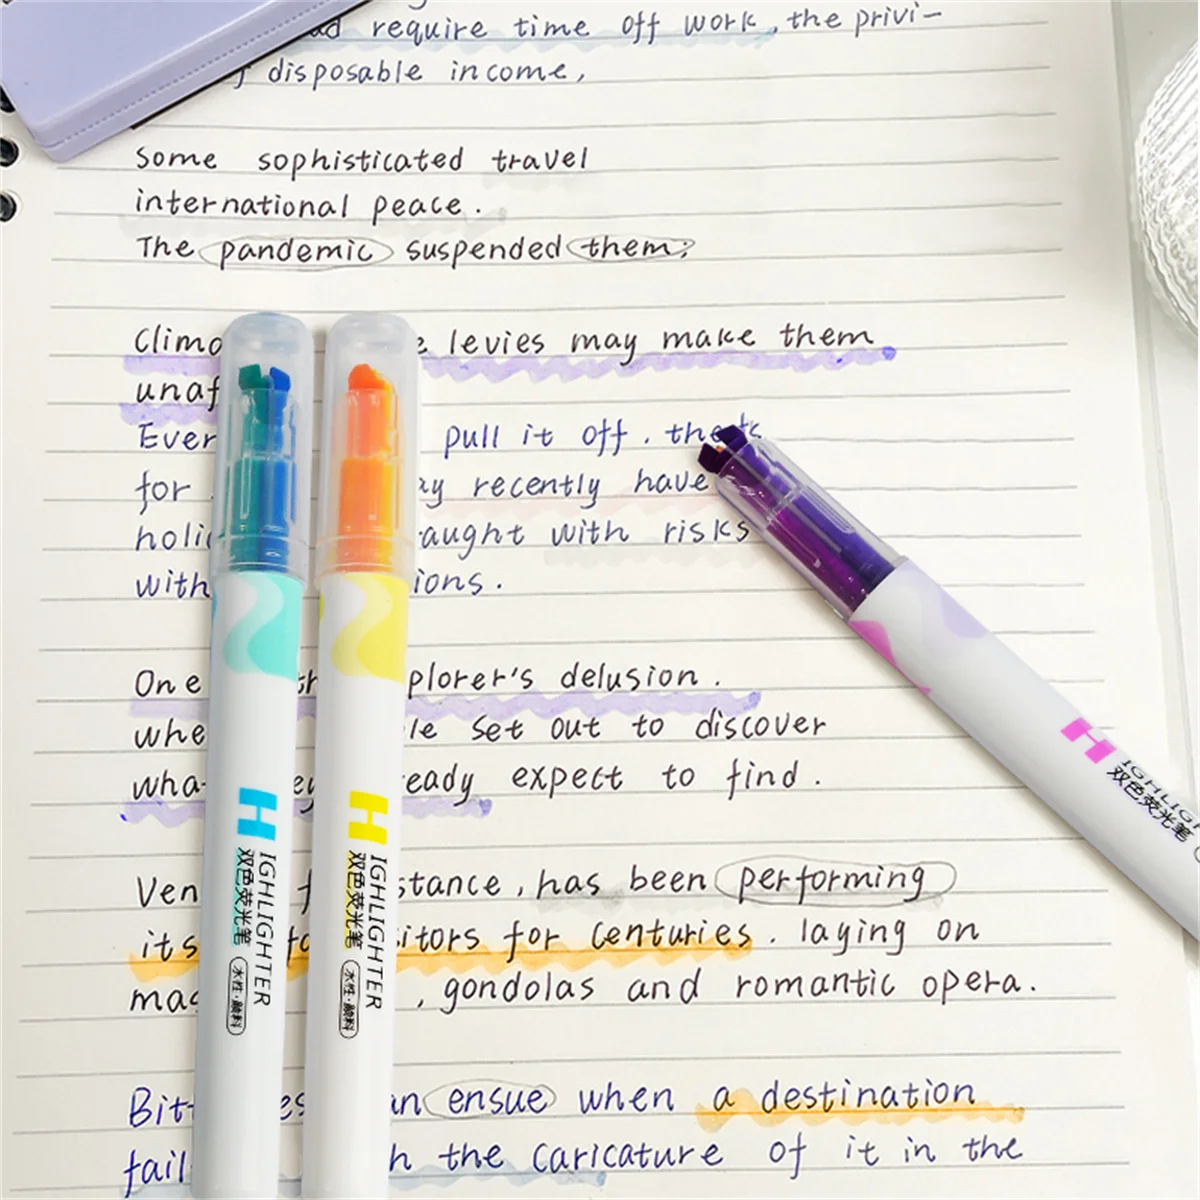 require time off work, the privi-
disposable income,
Some sophisticated travel
international peace.
The pandemic suspended them;
levies may make them
Ever pull it off. thats
for recently have
with risks
with
One plorer's delusion.
set out to discover
eady expect to find.
Ven stance, has been performing
its itors for centuries. laying on
, gondolas and romantic opera.
ensue when a destination
fail h the caricature of it in the
HIGHLIGHTER
双色荧光笔
水性·颜料
HIGHLIGHTER
双色荧光笔
水性·颜料
HIGHLIG
双色荧光笔